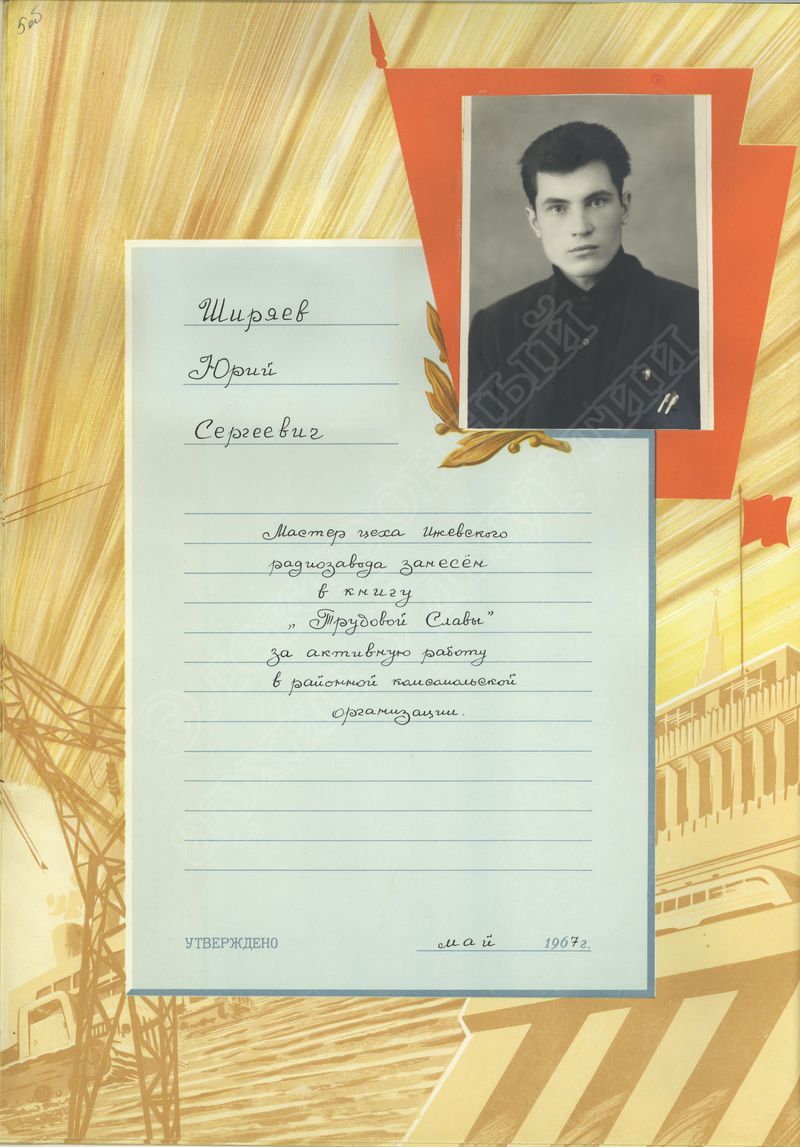 Ширяев
Юрий
Сергеевич
Мастер цеха Ижевского
радиозавода занесён
в книгу
„Трудовой Славы”
за активную работу
в районной комсомольской
организации.
УТВЕРЖДЕНО май 1967 г.